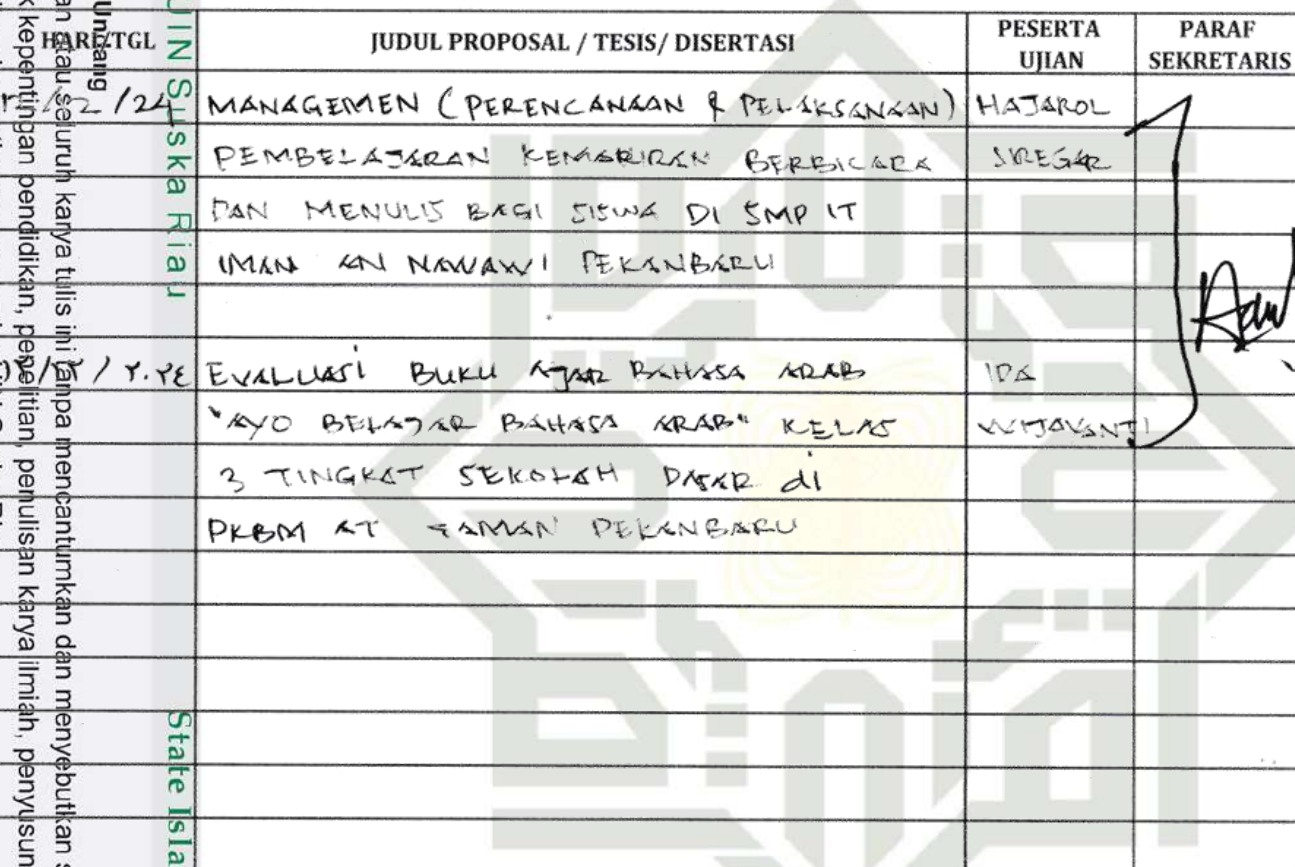 HARI/TGL JUDUL PROPOSAL / TESIS/ DISERTASI PESERTA UJIAN PARAF SEKRETARIS
/02 /24 MANAGEMEN (PERENCANAAN & PELAKSANAAN) HAJAROL
PEMBELAJARAN KEMAHIRAN BERBICARA SIREGAR
DAN MENULIS BAGI SISWA DI SMP IT
IMAN AN NAWAWI PEKANBARU
/ ٢٠٢٤ EVALUASI BUKU AJAR BAHASA ARAB IDA
"AYO BELAJAR BAHASA ARAB" KELAS WIJAYANTI
3 TINGKAT SEKOLAH DASAR di
PKBM AT PEKANBARU
UIN Suska Riau
State Isla
Undang
an atau seluruh karya tulis ini tanpa mencantumkan dan menyebutkan s
k kepentingan pendidikan, penelitian, penulisan karya ilmiah, penyusun